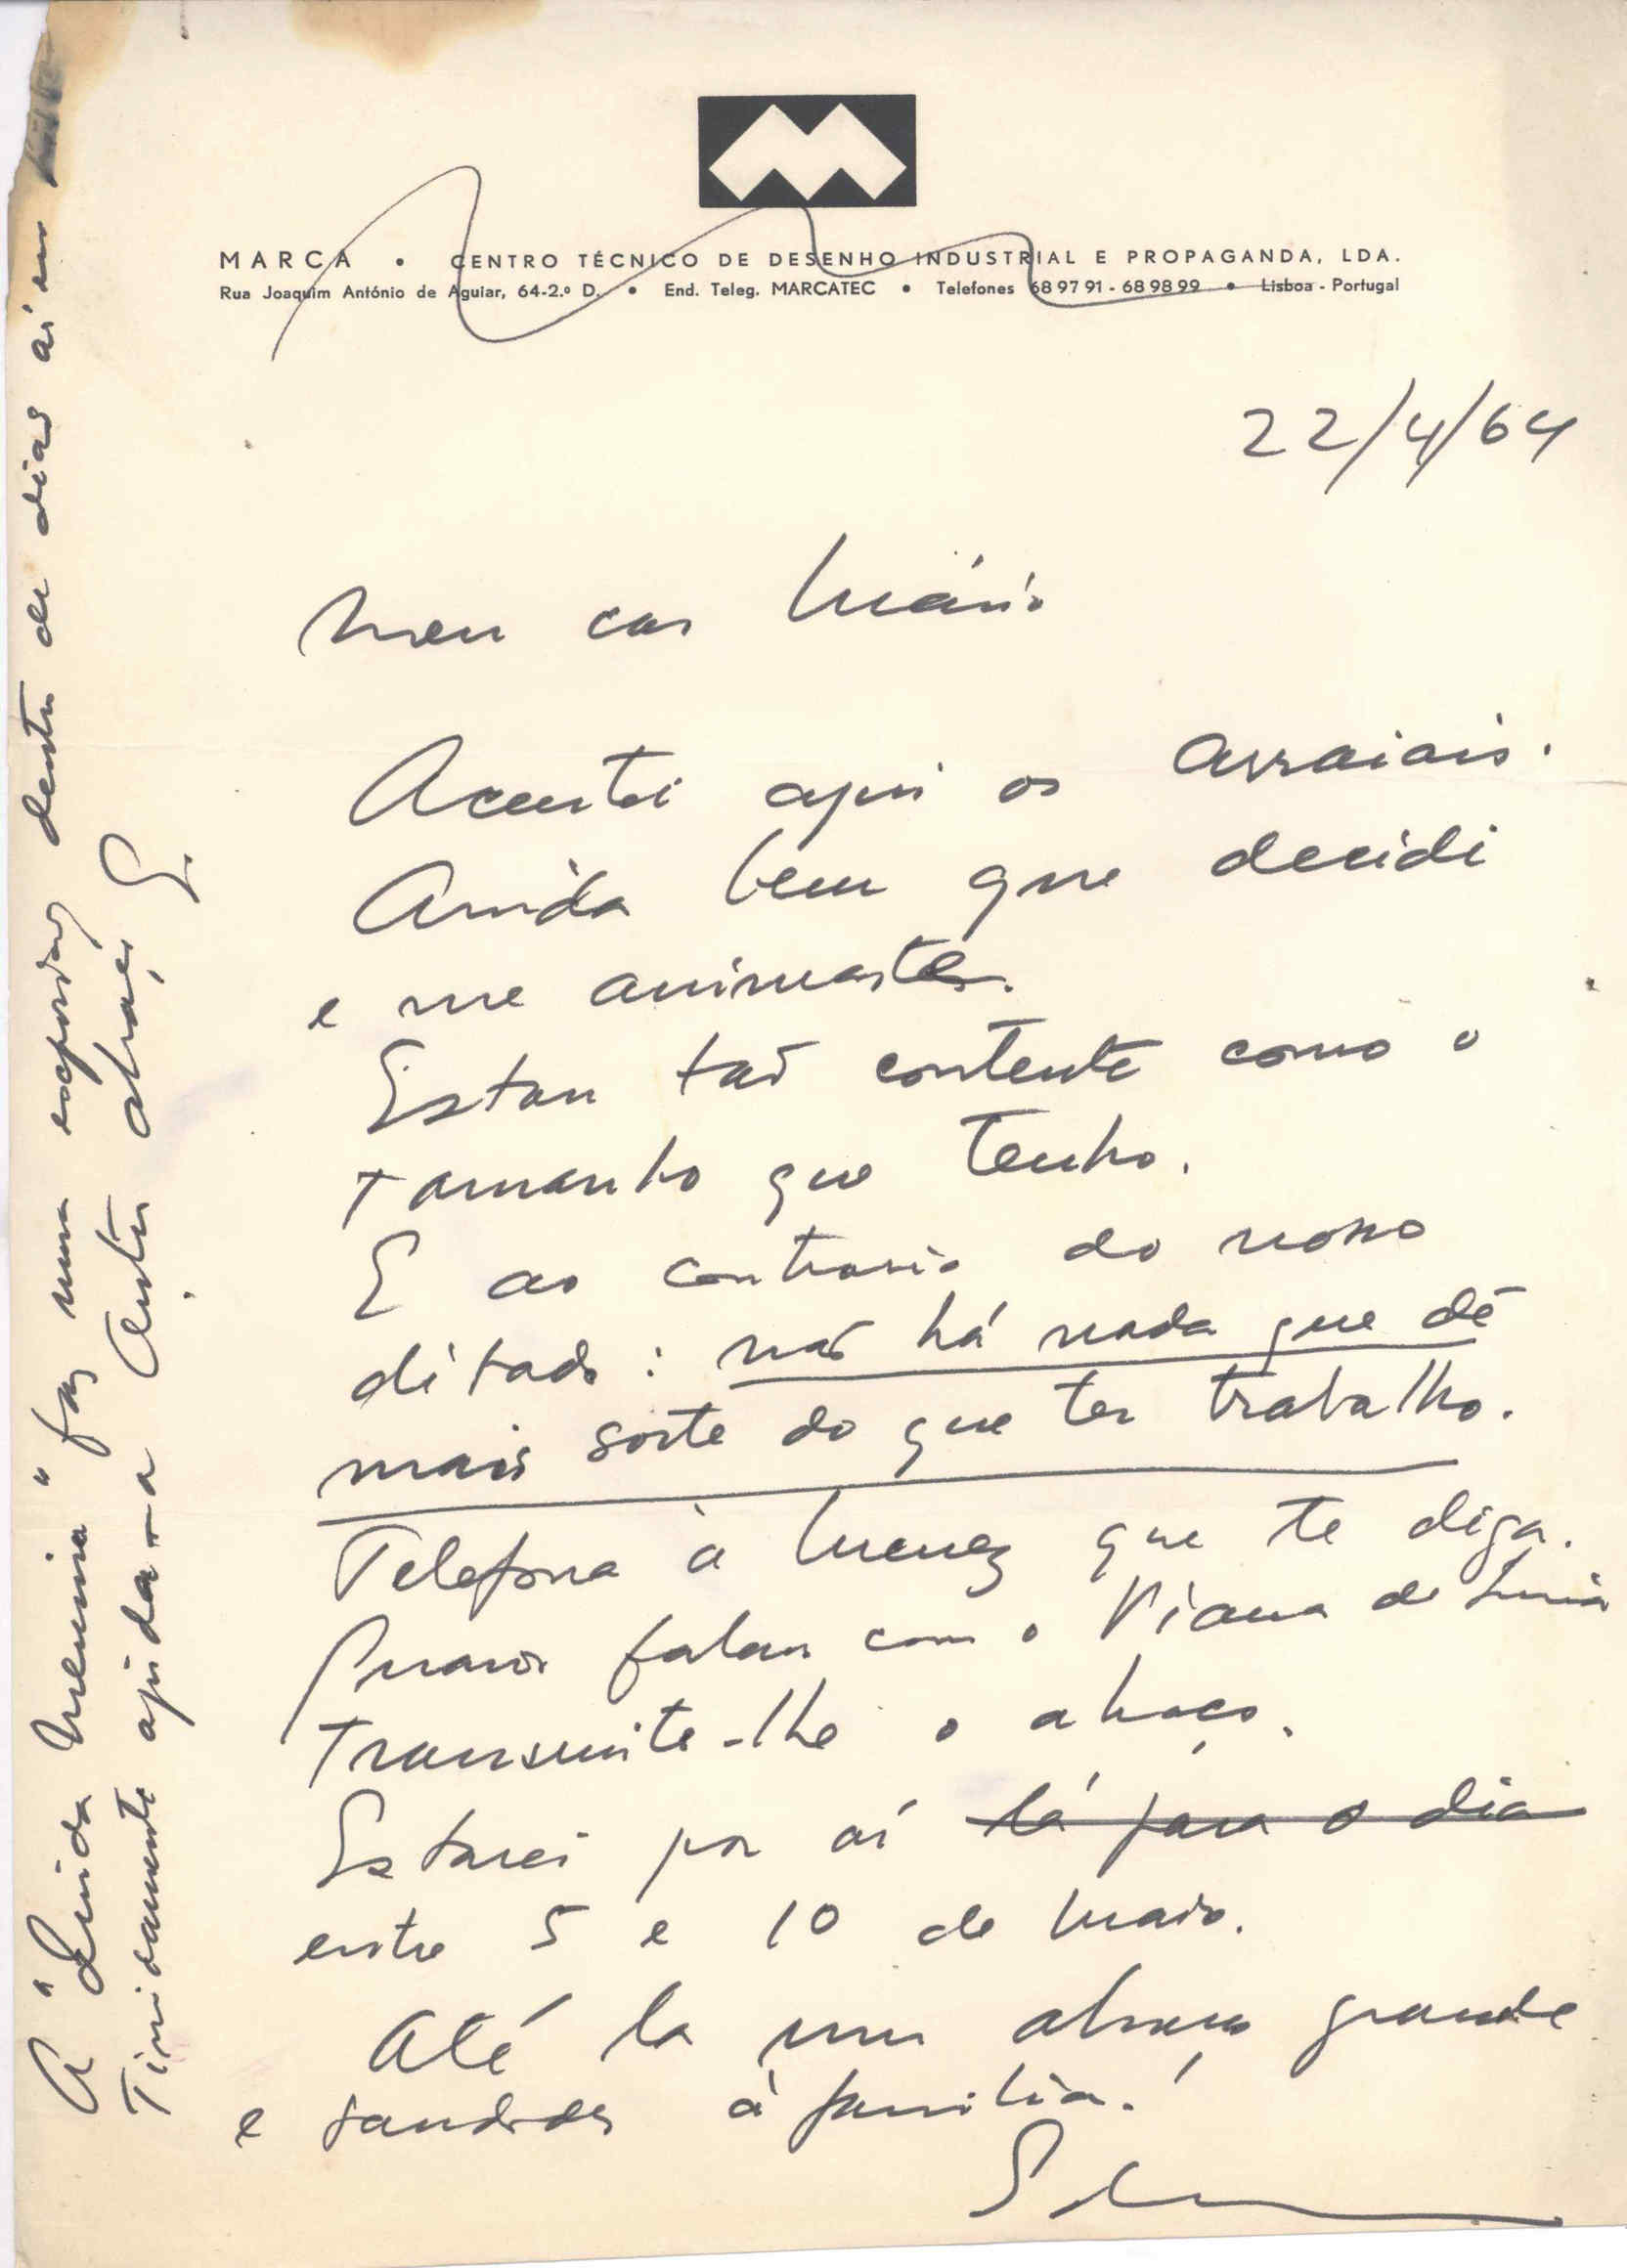 MARCA • CENTRO TÉCNICO DE DESENHO INDUSTRIAL E PROPAGANDA, LDA.
Rua Joaquim António de Aguiar, 64-2.º D. • End. Teleg. MARCATEC • Telefones 68 97 91 - 68 98 99 • Lisboa - Portugal
22/4/64
Meu caro Mário
Acentei aqui os arraiais.
Ainda bem que decidi
e me animaste.
Estou tão contente como o
tamanho que tenho.
E ao contrario do nosso
ditado: não há nada que dê
mais sorte do que ter trabalho.
Telefona à Menez que te diga.
falar com o Viana de Lima
Transmite-lhe o abraço.
Estarei por aí lá para o dia
entre 5 e 10 de Maio.
Até la um abraço grande
e saudades à família!
A "Linda Menina" faz uma exposição dentro de dias aí em
Timidamente ajudar-a Outro abraço S.